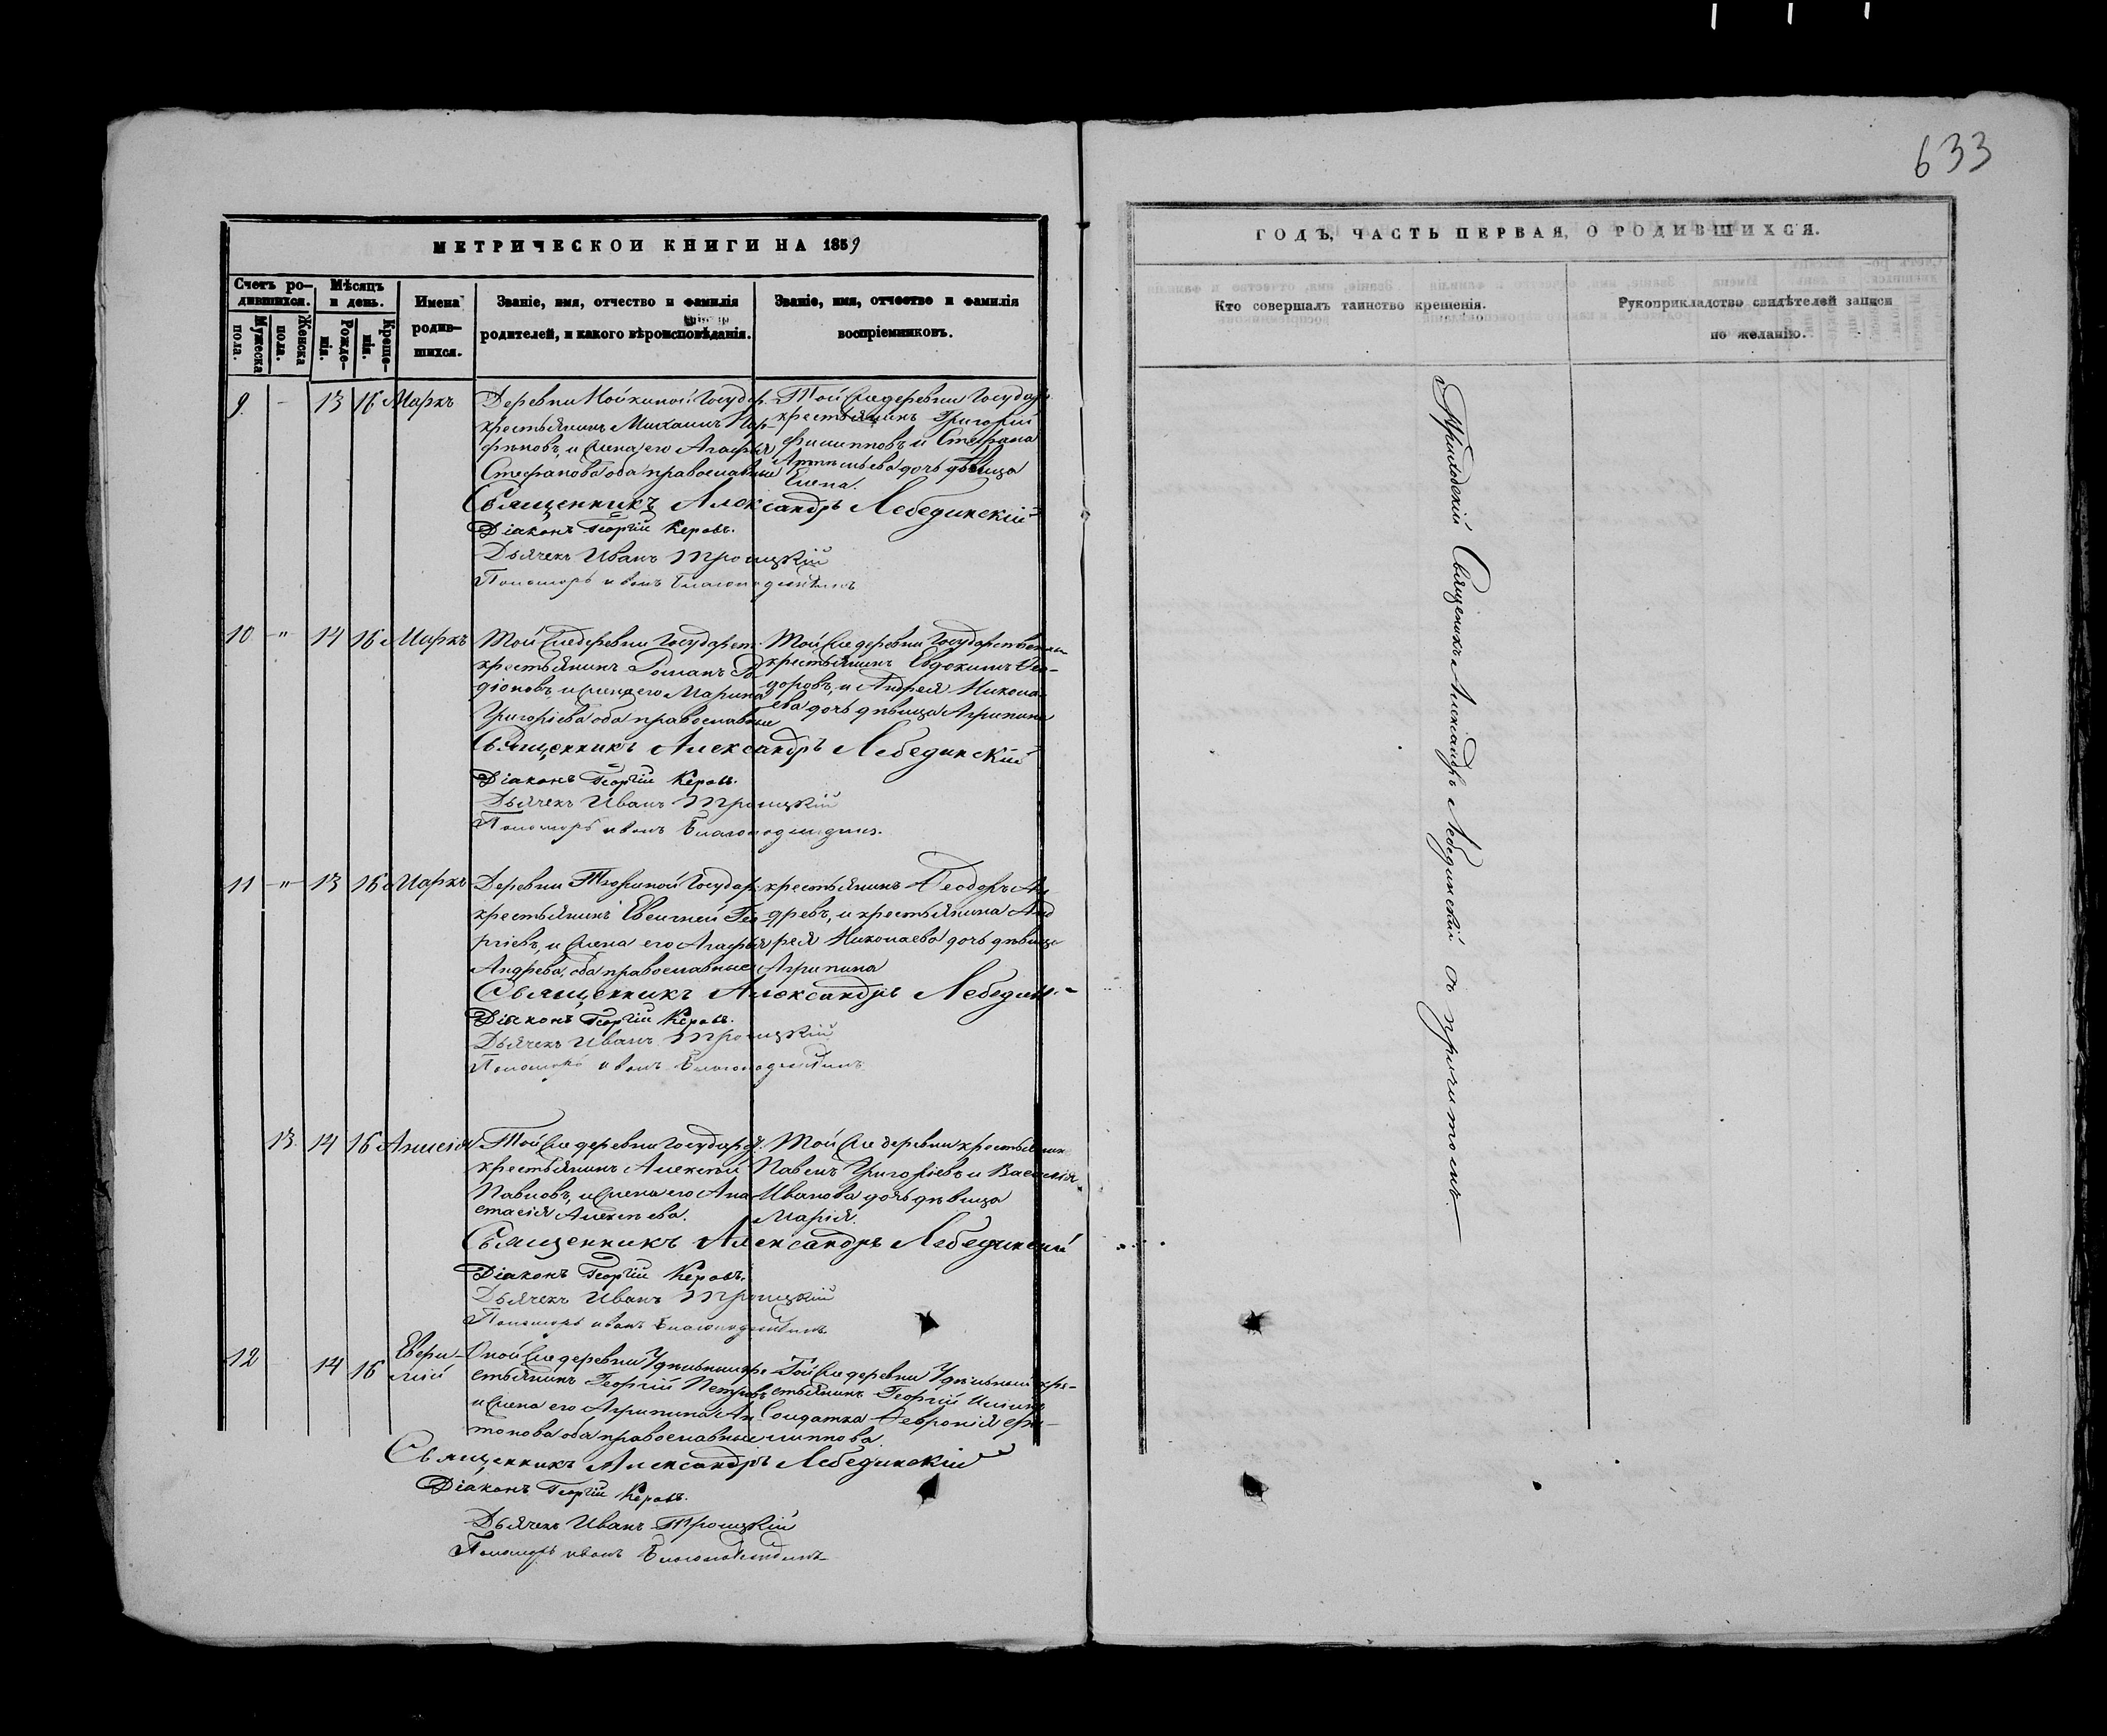 633
МЕТРИЧЕСКОЙ КНИГИ НА 1859
Счетъ ро-
дившихся.
Мѣсяцъ
и день.
Мужеска
пола.
Женска
пола.
Рожде-
нія.
Креще-
нія.
Имена
родив-
шихся.
Званіе, имя, отчество и фамилія
родителей, и какого вѣроисповѣданія.
Званіе, имя, отчество и фамилія
воспріемниковъ.
9 - 13 16 Маркъ
Деревни Государ.
крестьянинъ Михаилъ Пар-
фѣновъ, и жена его Агафья
Стефанова оба православные
Той же деревни Государ.
крестьянинъ Григорій
Филипповъ и Стефана
дочь дѣвица
Елена.
Священникъ Александръ Лебединскій
Діаконъ Георгій Керовъ.
Дьячекъ Иванъ Троицкій
Пономарь
10 " 14 16 Маркъ
Той же деревни Государст.
крестьянинъ Романъ Ро-
діоновъ, и жена его Марина
Григоріева оба православные
Той же деревни Государственны
крестьянинъ Евдокимъ Ѳео-
доровъ, и Андрея Никола-
ева дочь дѣвица Агрипина
Священникъ Александръ Лебединскій
Діаконъ Георгій Керовъ.
Дьячекъ Иванъ Троицкій
Пономарь
11 " 13 16 Маркъ
Деревни Государ.
крестьянинъ Евсигней Гео-
ргіевъ, и жена его Агафья
Андрева, оба православные
крестьянинъ Ѳеодоръ Ан-
древъ, и крестьянина Анд
рея Николаева дочь дѣвица
Агрипина
Священникъ Александръ Лебедин.
Діаконъ Георгій Керовъ.
Дьячекъ Иванъ Троицкій
Пономарь
13 14 16 Анисія
Той же деревни Государ.
крестьянинъ Алексѣй
Павловъ, и жена его Ана
стасія Алексѣева.
Той же деревни крестьянин
Павелъ Григоріевъ и Василія
Иванова дочь дѣвица
Марія.
Священникъ Александръ Лебединскій
Діаконъ Георгій Керовъ.
Дьячекъ Иванъ Троицкій
Пономарь
12 14 16
Оной же деревни Удѣльный кре
стьянинъ Георгій Петровъ
и жена его Агрипина Ан-
тонова оба православные
Той же деревни Удѣльный кре-
стьянинъ Георгій
Солдатка Февронія Фи-
липпова.
Священникъ Александръ Лебединскій
Діаконъ Георгій Керовъ.
Дьячекъ Иванъ Троицкій
Пономарь
ГОДЪ, ЧАСТЬ ПЕРВАЯ, О РОДИВШИХСЯ.
Кто совершалъ таинство крещенія.
Рукоприкладство свидѣтелей записи
по желанію.
Приходскій Священникъ Александръ Лебединскій съ причтомъ.